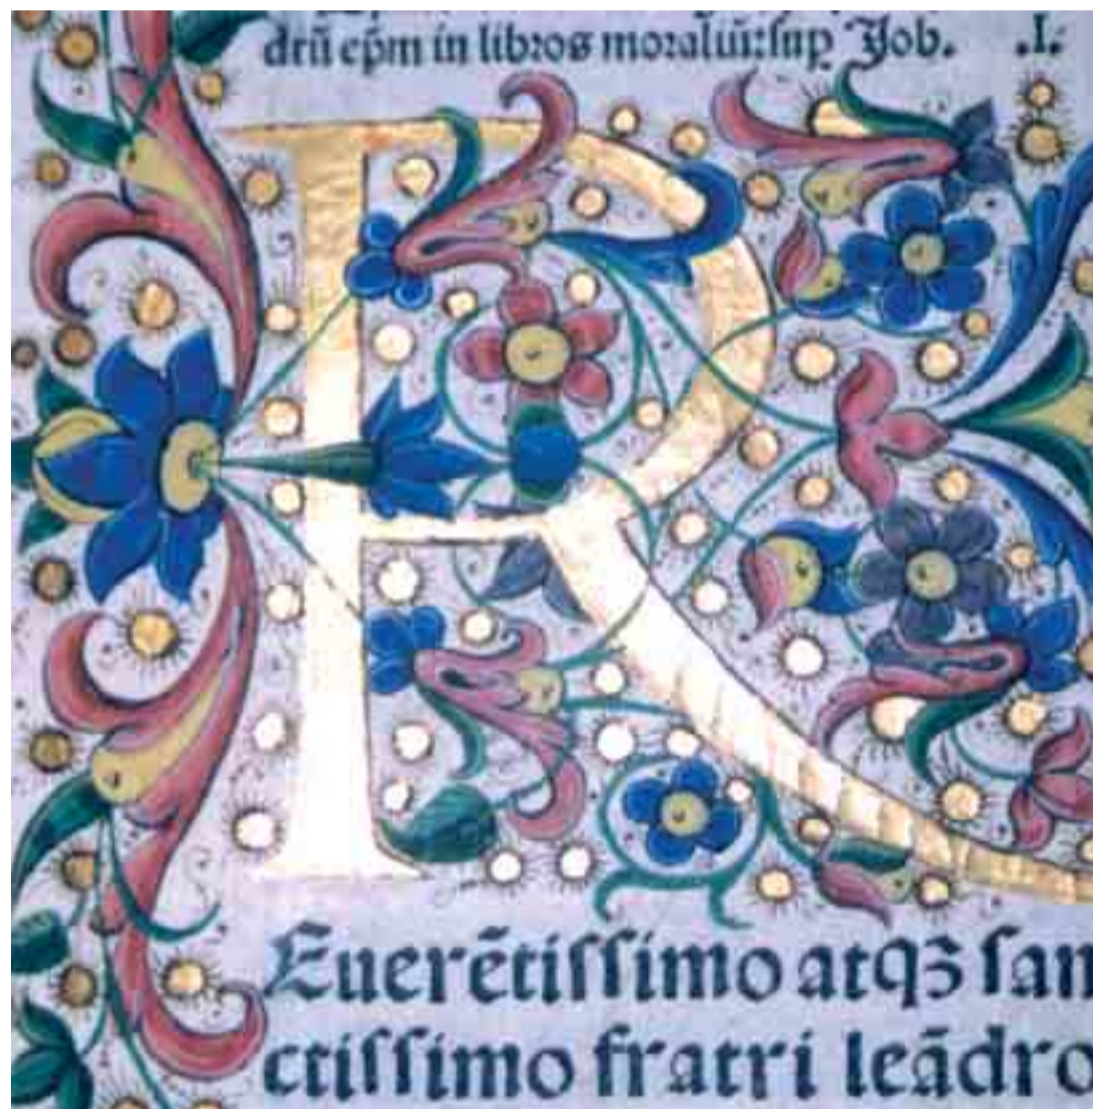 drū ep̄m in libros moraliū: sup Job. .I.
R
Euerētissimo atqꝫ san
ctissimo fratri leādro